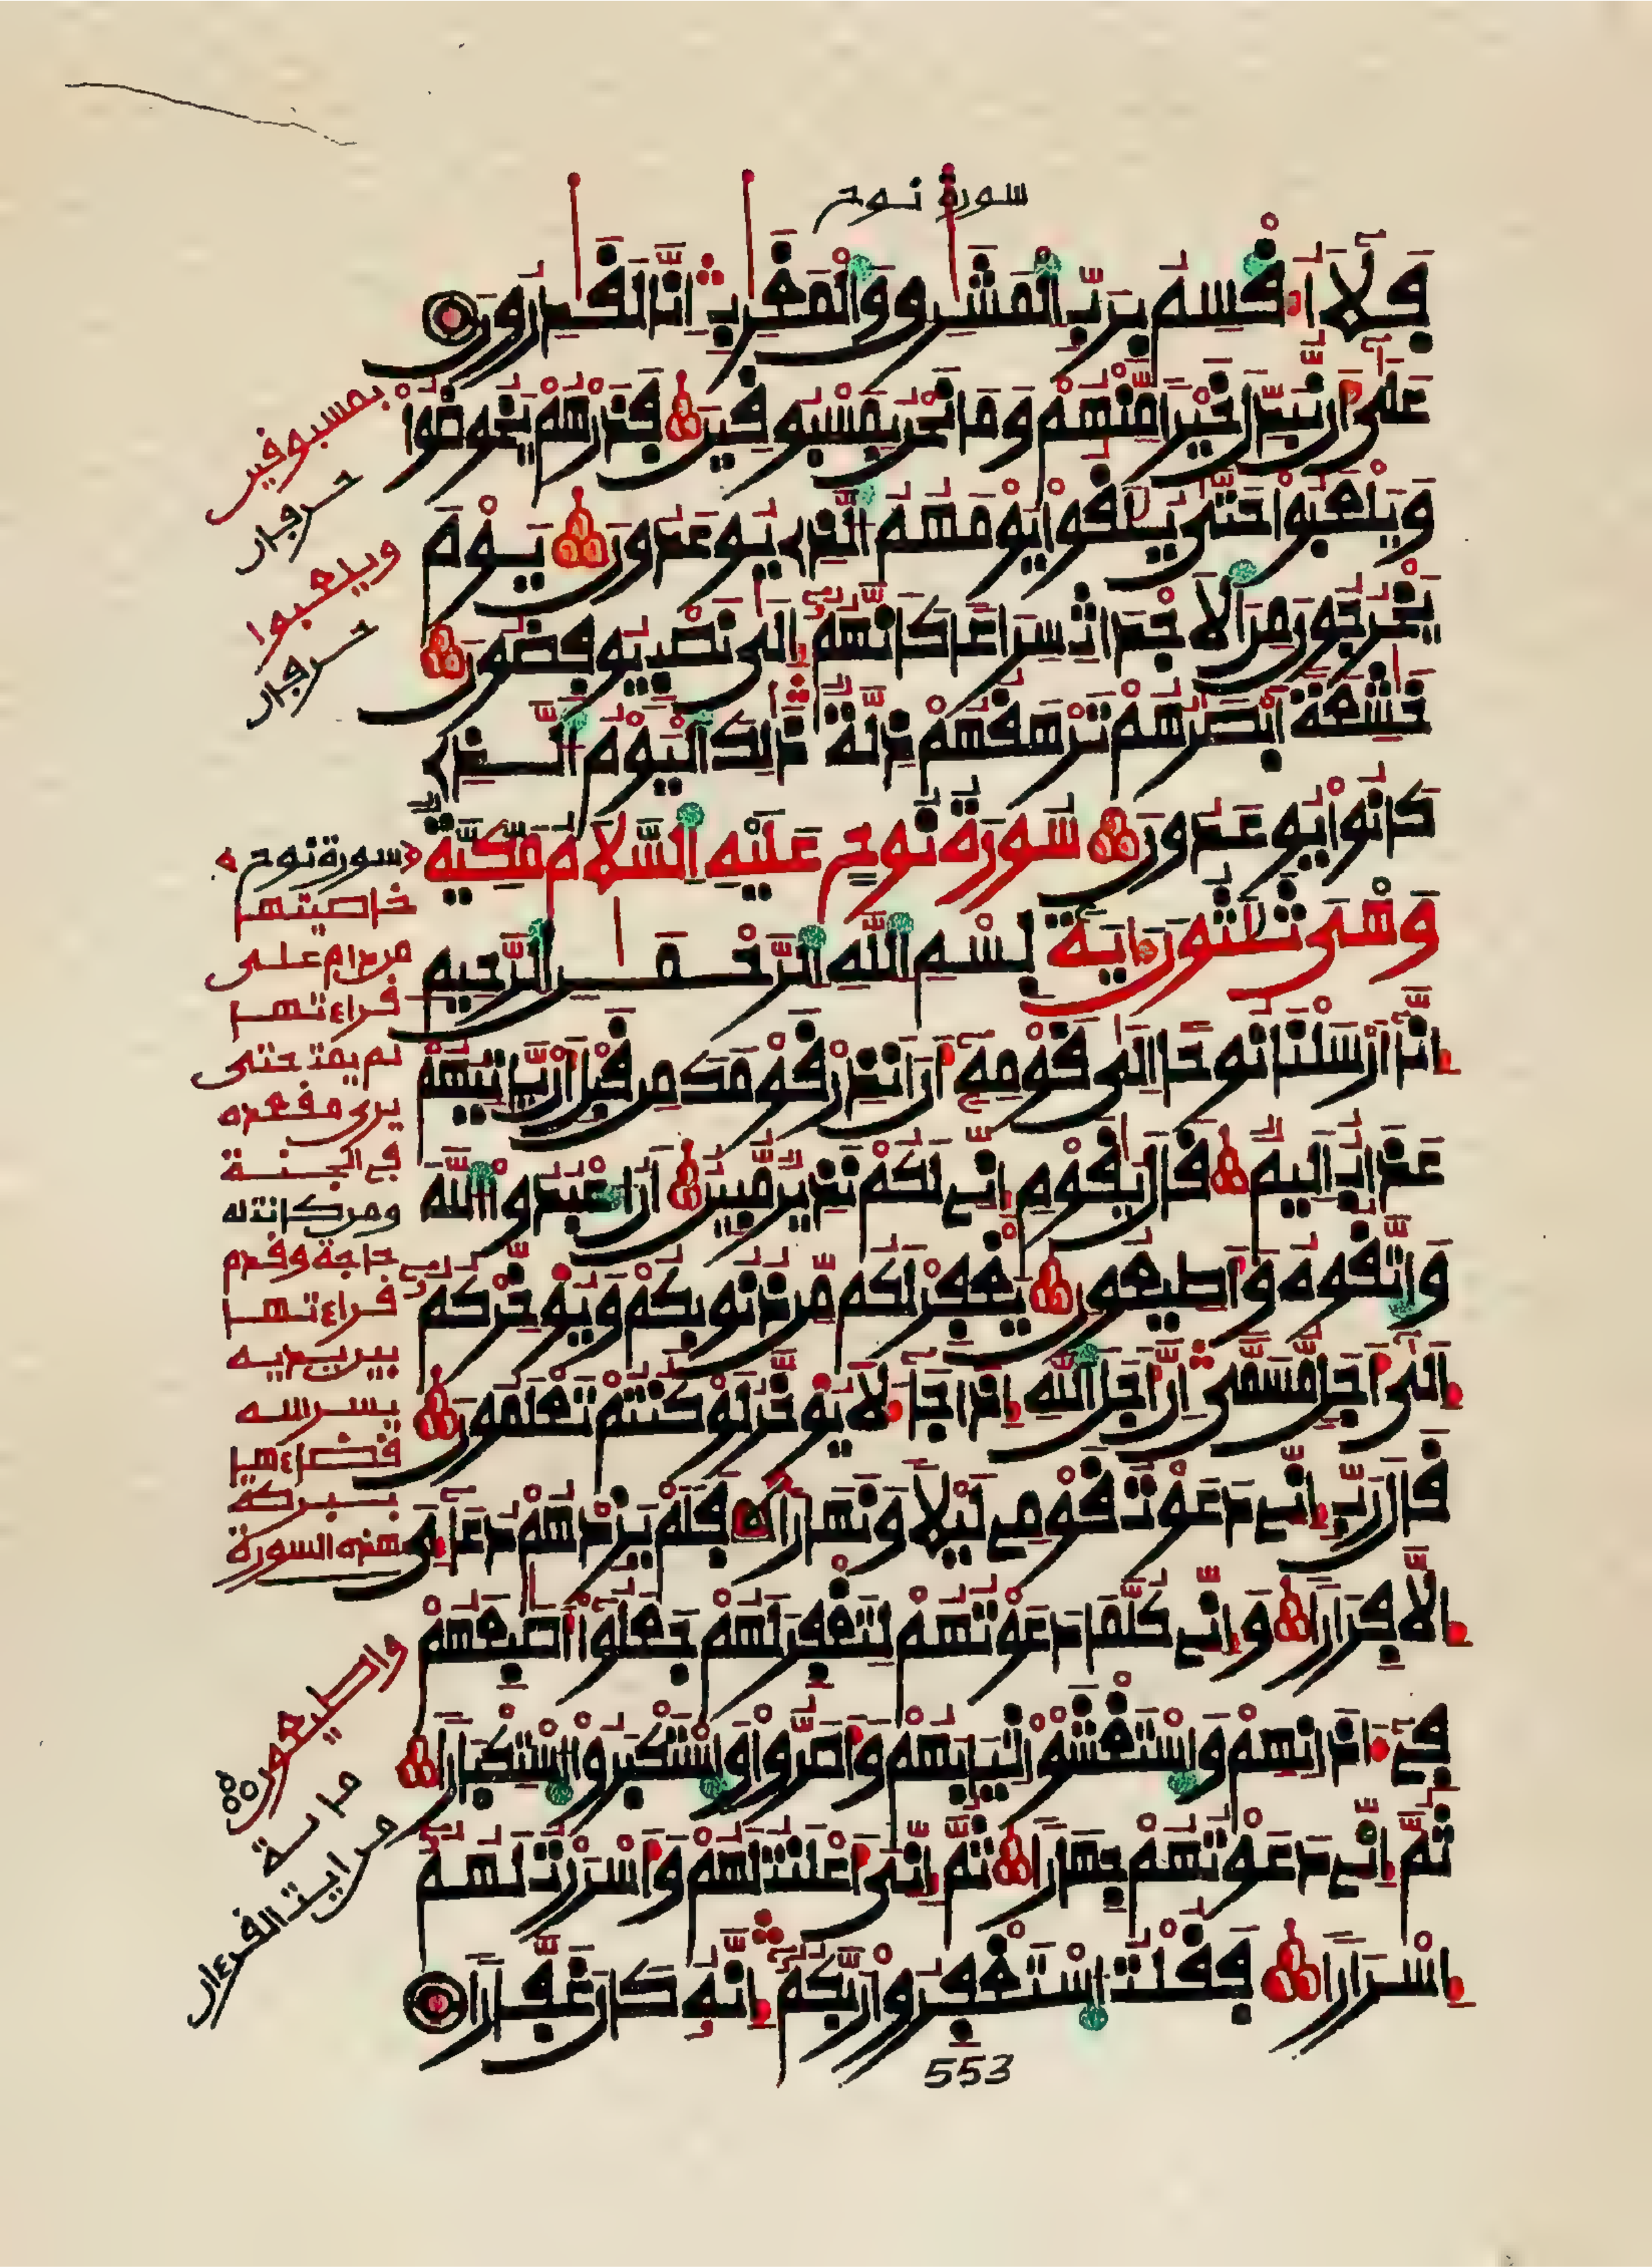 سورة نوح
فَلَا أُقْسِمُ بِرَبِّ الْمَشَٰرِقِ وَالْمَغَٰرِبِ إِنَّا لَقَٰدِرُونَ
عَلَىٰ أَن نُّبَدِّلَ خَيْرًا مِّنْهُمْ وَمَا نَحْنُ بِمَسْبُوقِينَ فَذَرْهُمْ يَخُوضُوا
وَيَلْعَبُوا حَتَّىٰ يُلَٰقُوا يَوْمَهُمُ الَّذِي يُوعَدُونَ يَوْمَ
يَخْرُجُونَ مِنَ الَاجْدَاثِ سِرَاعًا كَأَنَّهُمُ إِلَىٰ نَصْبٍ يُوفِضُونَ
خَٰشِعَةً أَبْصَٰرُهُمْ تَرْهَقُهُمْ ذِلَّةٌ ذَٰلِكَ الْيَوْمُ الَّذِي
كَانُوا يُوعَدُونَ سُورَةُ نُوحٍ عَلَيْهِ السَّلَامُ مَكِّيَّةٌ
وَهْىَ ثَلَٰثُونَ ءَايَةً بِسْمِ اللَّهِ الرَّحْمَٰنِ الرَّحِيمِ
إِنَّا أَرْسَلْنَا نُوحًا إِلَىٰ قَوْمِهِ أَنَ انذِرْ قَوْمَكَ مِن قَبْلِ أَن يَّاتِيَهُمْ
عَذَابٌ أَلِيمٌ قَالَ يَٰقَوْمِ إِنِّي لَكُمْ نَذِيرٌ مُّبِينٌ أَنُ اعْبُدُوا اللَّهَ
وَاتَّقُوهُ وَأَطِيعُونِ يَغْفِرْ لَكُم مِّن ذُنُوبِكُمْ وَيُوَخِّرْكُمُ
إِلَىٰ أَجَلٍ مُّسَمًّى إِنَّ أَجَلَ اللَّهِ إِذَا جَاءَ لَا يُوَخَّرُ لَوْ كُنتُمْ تَعْلَمُونَ
قَالَ رَبِّ إِنِّي دَعَوْتُ قَوْمِي لَيْلًا وَنَهَارًا فَلَمْ يَزِدْهُمْ دُعَاءِي
إِلَّا فِرَارًا وَإِنِّي كُلَّمَا دَعَوْتُهُمْ لِتَغْفِرَ لَهُمْ جَعَلُوا أَصَٰبِعَهُمْ
فِي ءَاذَانِهِمْ وَاسْتَغْشَوْا ثِيَابَهُمْ وَأَصَرُّوا وَاسْتَكْبَرُوا اسْتِكْبَارًا
ثُمَّ إِنِّي دَعَوْتُهُمْ جِهَارًا ثُمَّ إِنِّيَ أَعْلَنتُ لَهُمْ وَأَسْرَرْتُ لَهُمُ
إِسْرَارًا فَقُلْتُ اسْتَغْفِرُوا رَبَّكُمُ إِنَّهُ كَانَ غَفَّارًا
553
بمسبوفين
حرفان
ويلعبوا
حرفان
سورة نوح
خاصيتها
من دام على
قراءتها
لم يمت حتى
يرى مقعده
في الجنة
ومن كانت له
حاجة وقدم
قراءتها
بين يديه
يسر الله
قضاءها
ببركة
هذه السورة
واطيعون
من اية القرءان